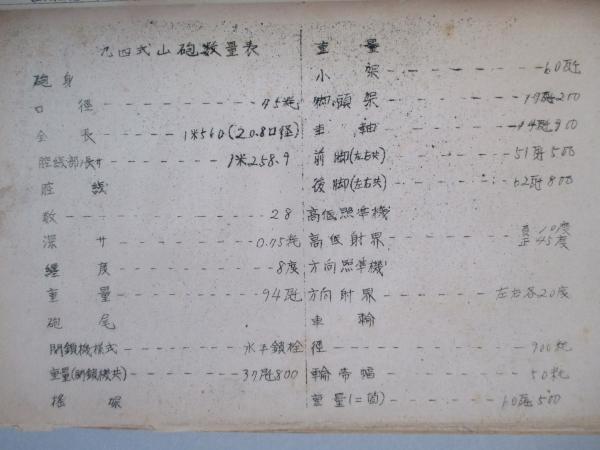 九四式山砲数量表
砲身
口径 75粍
全長 1米560(20.8口径)
腔綫部ノ長サ 1米258.9
腔綫
数 28
深サ 0.75粍
纏度 8度
重量 94瓩
砲尾
閉鎖機様式 水平鎖栓
重量(閉鎖機共) 37瓩800
揺架
重量
小架 60瓩
脚頭架 200
車軸 14瓩900
前脚(左右共) 51瓩500
後脚(左右共) 52瓩800
高低照準機
高低射界 10度
45度
方向照準機
方向射界 左右各20度
車輪
径 900粍
輪帯幅 50粍
重量(二箇) 60瓩500